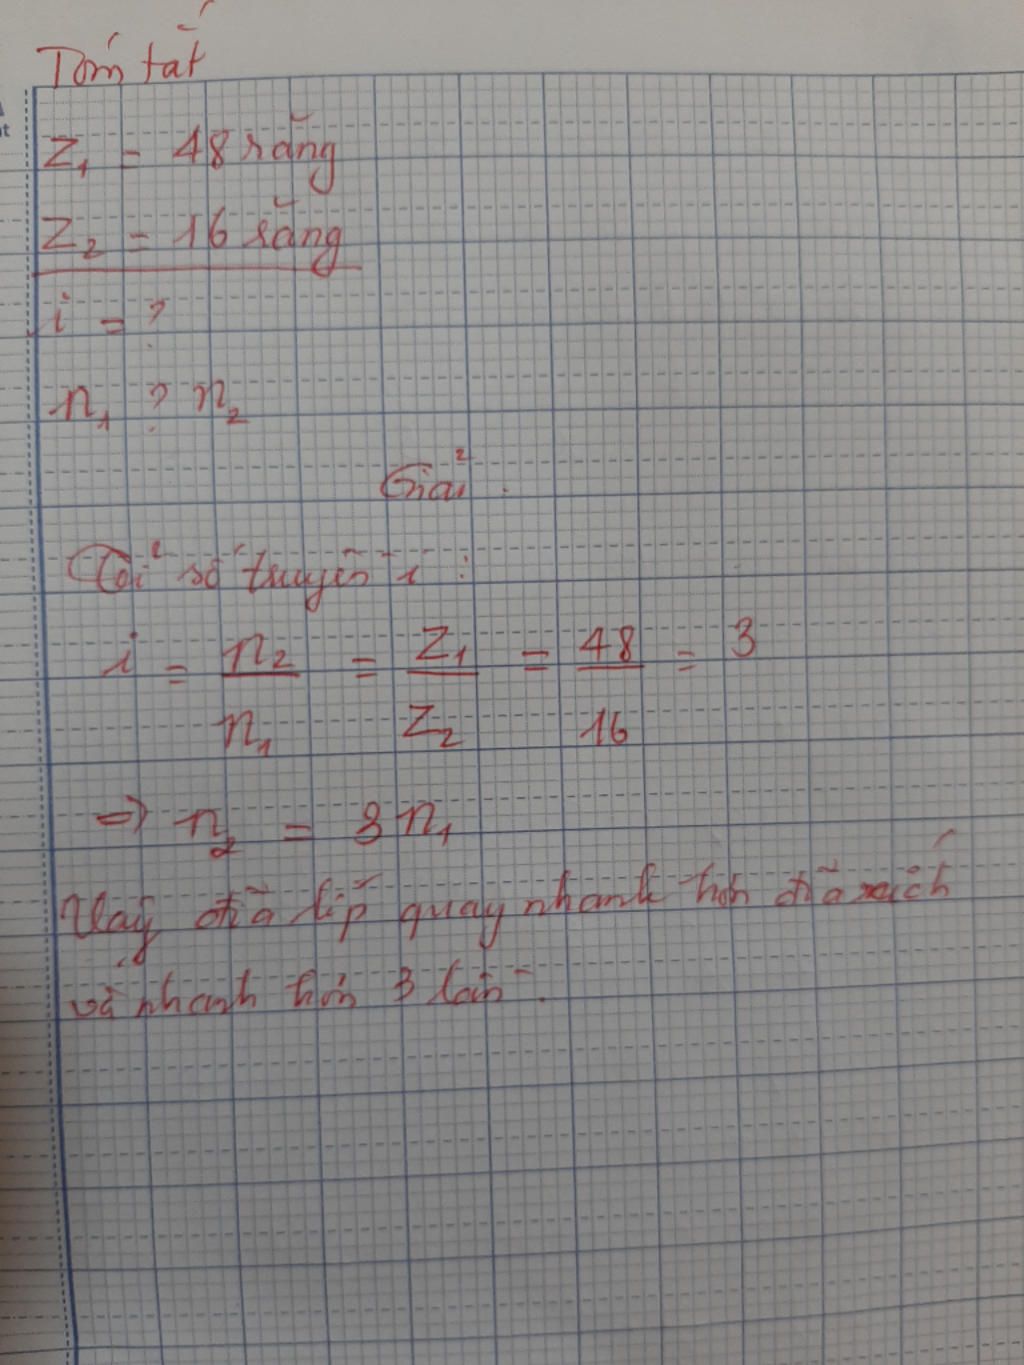 Tóm tắt
Z₁ = 48 răng
Z₂ = 16 răng
i = ?
n₁ ? n₂
Giải.
Tỉ số truyền i :
i = n₂/n₁ = Z₁/Z₂ = 48/16 = 3
=> n₂ = 3n₁
Vậy đĩa líp quay nhanh hơn đĩa xích
và nhanh hơn 3 lần.